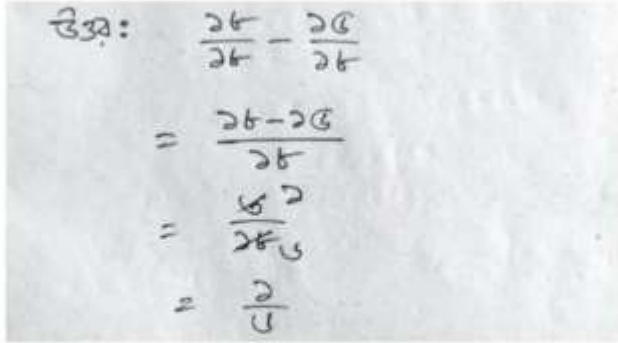 উত্তর: ১৮/১৮ - ১৫/১৮
= ১৮-১৫/১৮
= ৩ ১/১৮ ৬
= ১/৬